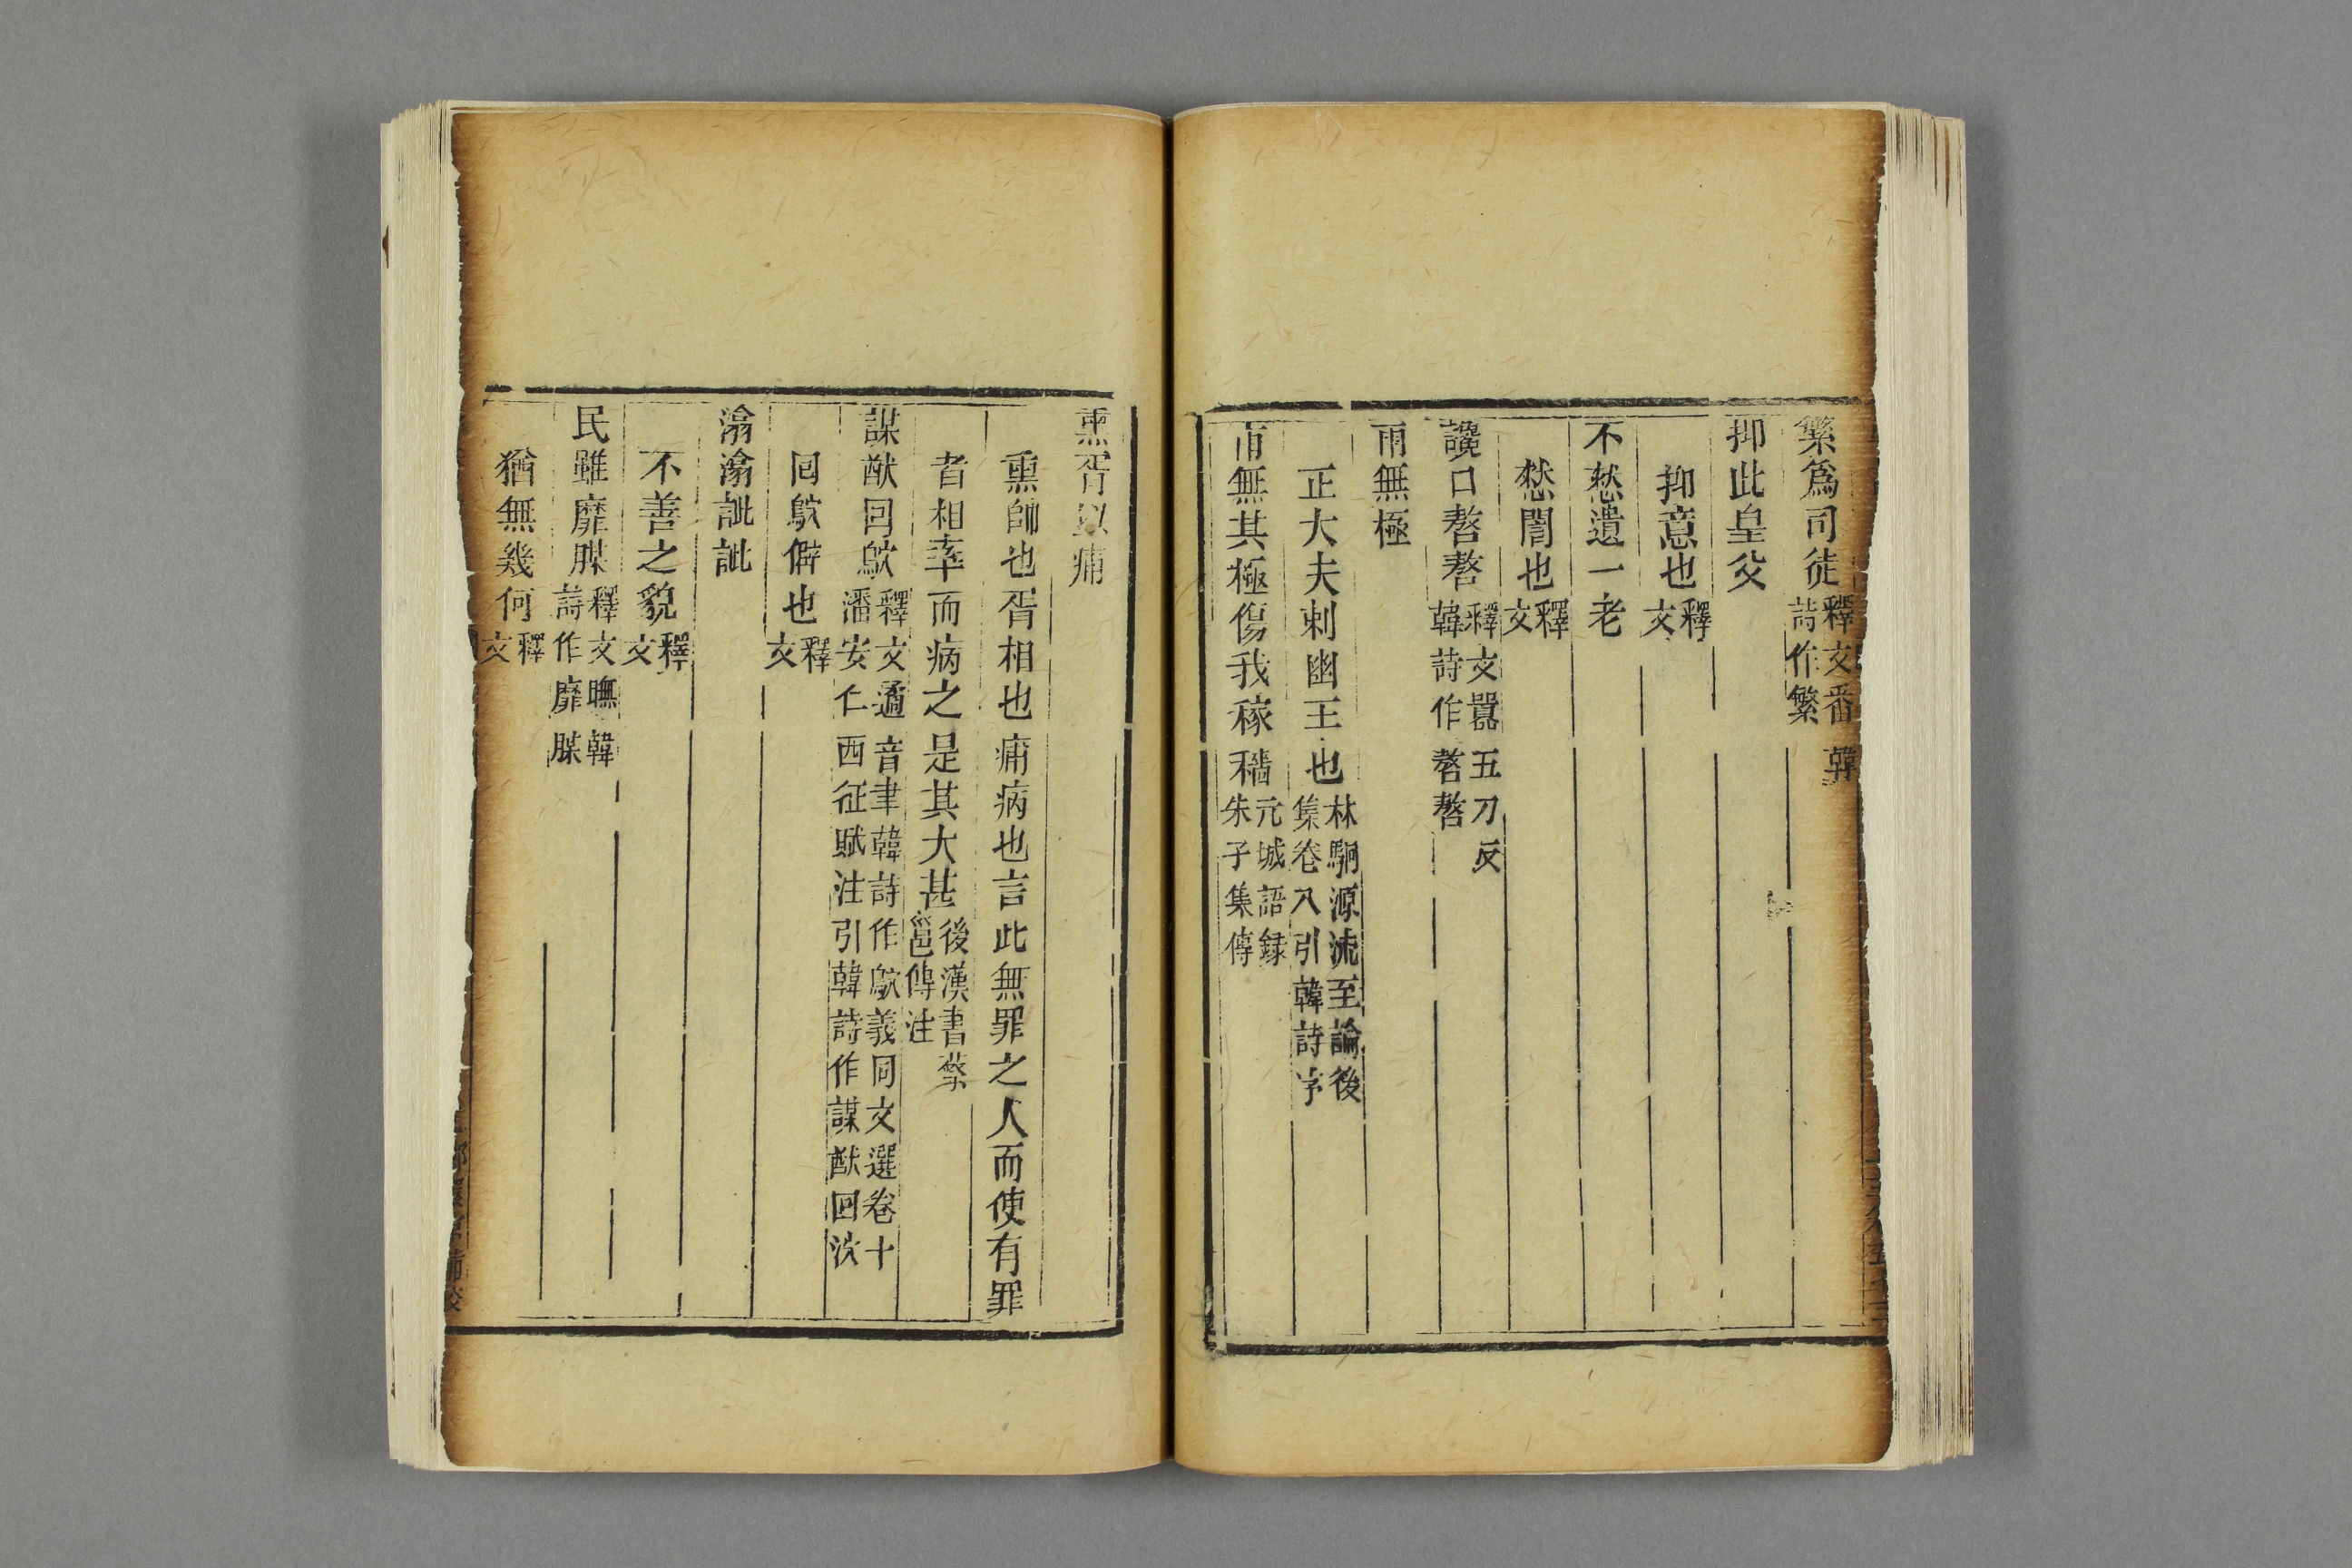 繁爲司徒釋文番韓詩作繁
抑此皇父
抑意也釋文
不憖遺一老
憖誾也釋文
讒口嗸嗸釋文囂五刀反韓詩作嗸嗸
雨無極
正大夫刺幽王也林駉源流至論後集卷八引韓詩序
雨無其極傷我稼穡元城語録朱子集傳
熏胥以痡
熏帥也胥相也痡病也言此無罪之人而使有罪
者相率而病之是其大甚後漢書蔡邕傳注
謀猷回鴥釋文遹音聿韓詩作鴥義同文選卷十潘安仁西征賦注引韓詩作謀猷回泬
回鴥僻也釋文
潝潝訿訿
不善之貌釋文
民雖靡腜釋文膴韓詩作靡腜
猶無幾何釋文